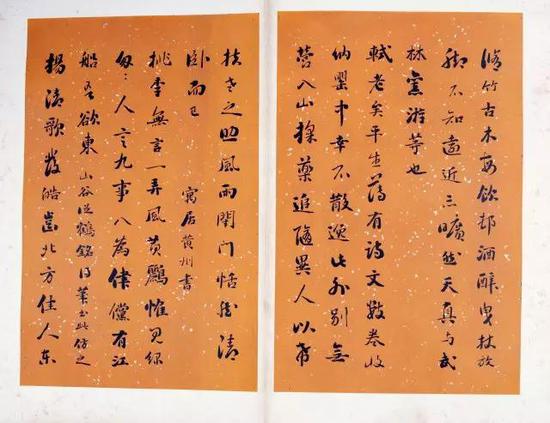 脩竹古木每飲邨酒醉曳杖放
脚不知遠近亦曠然天真与武
林舊游等也
軾老矣平生薄有詩文数卷收
納罌中幸不散逸此外別無
營入山採藥追隨異人以希
扶老之助風雨閉門恬然清
臥而已
寓居黃州書
桃李無言一弄風黃鸝惟見綠
匆々人言九事八為律儻有江
船吾欲東 山谷從鶴銘得筆書此仿之
揚清歌發皓齒北方佳人東